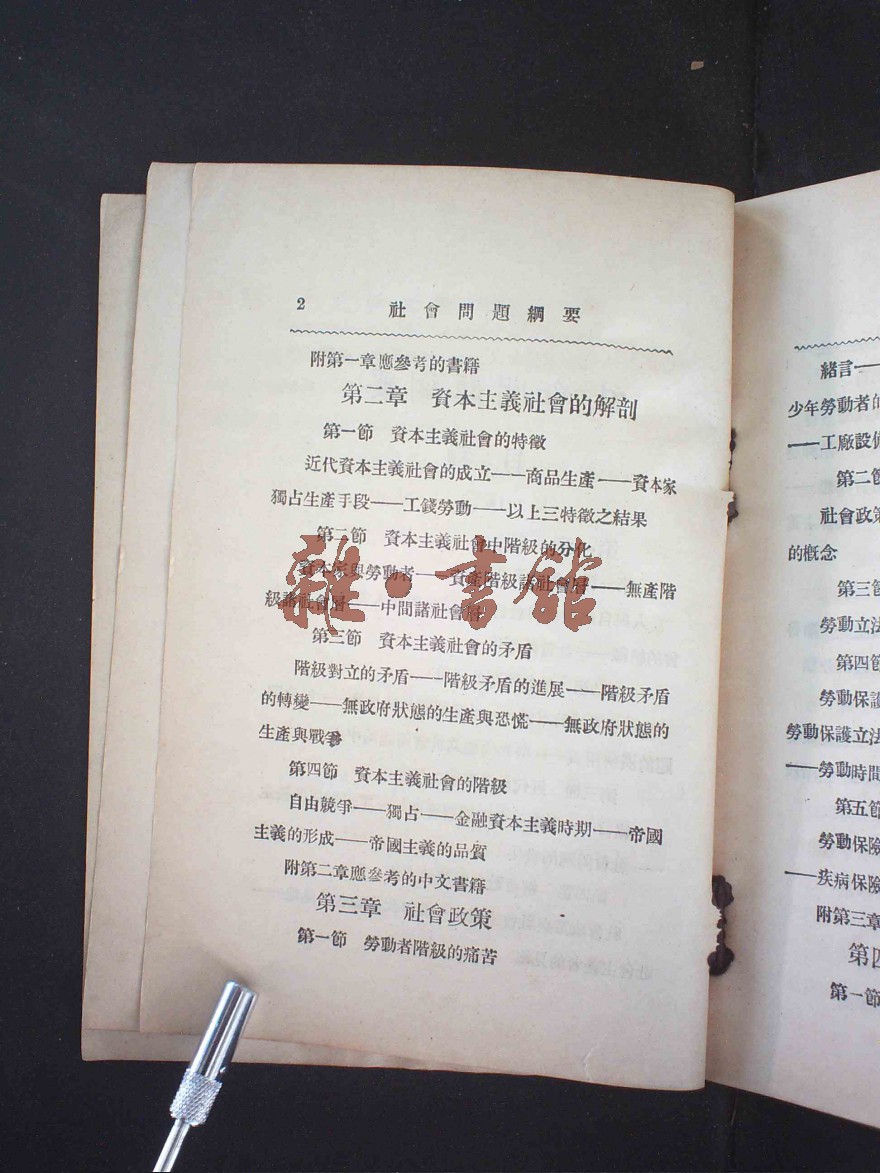 2 社會問題綱要
附第一章應參考的書籍
第二章 資本主義社會的解剖
第一節 資本主義社會的特徵
近代資本主義社會的成立——商品生產——資本家
獨占生產手段——工錢勞動——以上三特徵之結果
第二節 資本主義社會中階級的分化
資本家與勞動者——資產階級諸社會層——無產階
級諸社會層——中間諸社會層
第三節 資本主義社會的矛盾
階級對立的矛盾——階級矛盾的進展——階級矛盾
的轉變——無政府狀態的生產與恐慌——無政府狀態的
生產與戰爭
第四節 資本主義社會的階級
自由競爭——獨占——金融資本主義時期——帝國
主義的形成——帝國主義的品質
附第二章應參考的中文書籍
第三章 社會政策
第一節 勞動者階級的痛苦
雜·書館
緒言——
少年勞動者的
——工廠設備
第二節
社會政策
的概念
第三節
勞動立法
第四節
勞動保護
勞動保護立法
——勞動時間
第五節
勞動保險
——疾病保險
附第三章
第四
第一節